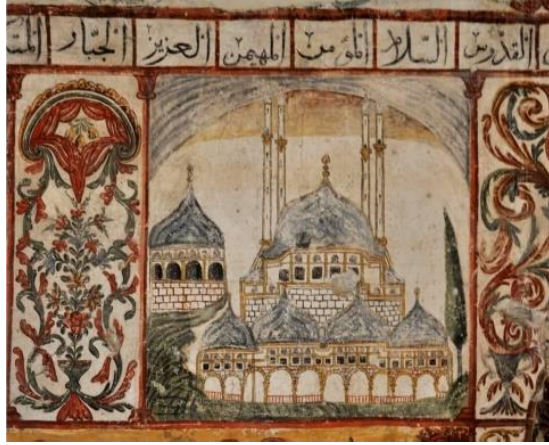 القدوس السلام المؤمن المهيمن العزيز الجبار